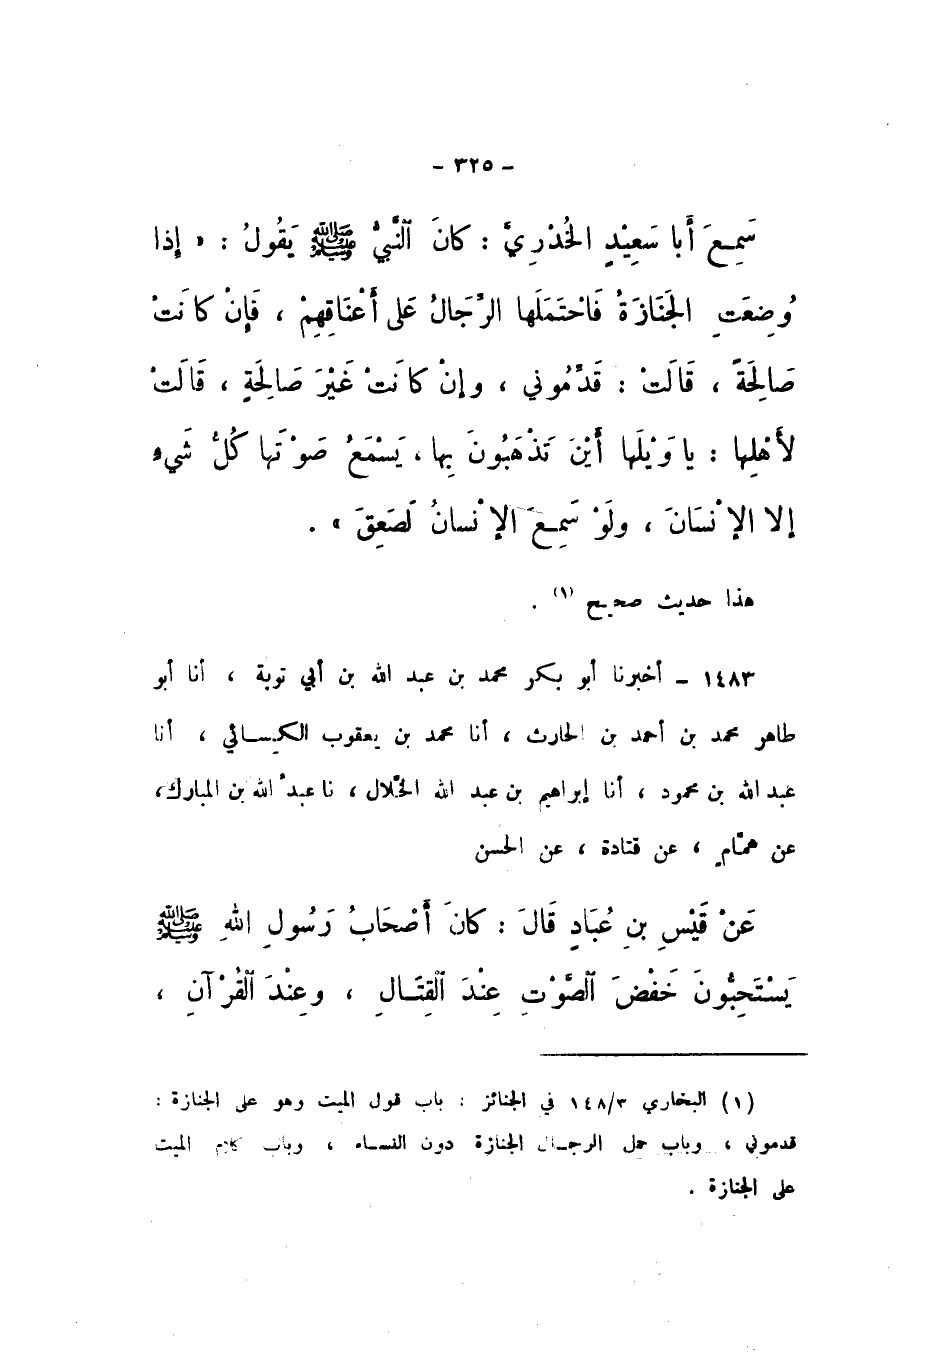 - ٣٢٥ -
سَمِعَ أَبا سَعِيْدٍ الخُدْرِيَّ : كانَ ٱلنَّبيُّ ﷺ يَقُولُ : « إِذا
وُضِعَتِ الجَنَازَةُ فَاحْتَمَلَها الرِّجَالُ عَلى أَعْنَاقِهِمْ ، فَإِنْ كانَتْ
صَالِحَةً ، قَالَتْ : قَدِّمُوني ، وإنْ كانَتْ غَيْرَ صَالِحَةٍ ، قَالَتْ
لأَهْلِها : يا وَيْلَها أَيْنَ تَذْهَبُونَ بِها ، يَسْمَعُ صَوْتَها كُلُّ شَيءٍ
إلا الإنْسَانَ ، ولَوْ سَمِعَ الإنْسانُ لَصَعِقَ » .
هذا حديث صحيح (١) .
١٤٨٣ - أخبرنا أبو بكر محمد بن عبد الله بن أبي توبة ، أنا أبو
طاهر محمد بن أحمد بن الحارث ، أنا محمد بن يعقوب الكيسـائي ، أنا
عبد الله بن محمود ، أنا إبراهيم بن عبد الله الخلّال ، نا عبدُ الله بن المبارك ،
عن همّامٍ ، عن قتادة ، عن الحسن
عَنْ قَيْسِ بنِ عُبَادٍ قَالَ : كانَ أَصْحَابُ رَسُولِ اللهِ ﷺ
يَسْتَحِبُّونَ خَفْضَ ٱلصَّوْتِ عِنْدَ ٱلقِتَـالِ ، وعِنْدَ ٱلقُرْآنِ ،
(١) البخاري ١٤٨/٣ في الجنائز : باب قول الميت وهو على الجنازة :
قدموني ، وباب حمل الرجـال الجنازة دون النسـاء ، وباب كلام الميت
على الجنازة .